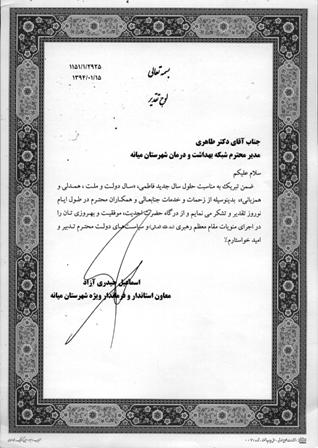 ۱۱۵۱/۱/۲۹۲۵
۱۳۹۴/۰۱/۱۵
بسمه تعالی
لوح تقدیر
جناب آقای دکتر طاهری
مدیر محترم شبکه بهداشت و درمان شهرستان میانه
سلام علیکم
ضمن تبریک به مناسبت حلول سال جدید فاطمی، «سال دولت و ملت، همدلی و
همزبانی»، بدینوسیله از زحمات و خدمات جنابعالی و همکاران محترم در طول ایام
نوروز تقدیر و تشکر می نمایم و از درگاه حضرت احدیت، موفقیت و بهروزی تان را
در اجرای منویات مقام معظم رهبری و سیاست‌های دولت محترم تدبیر و
امید خواستارم./
اسماعیل حیدری آزاد
معاون استاندار و فرماندار ویژه شهرستان میانه